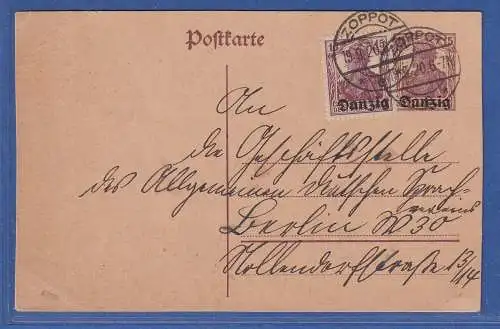 Postkarte
ZOPPOT
Danzig Danzig
An
die Geschäftsstelle
des Allgemeinen deutschen Sprach-
vereins
Berlin W 30
Nollendorfstraße 13/14